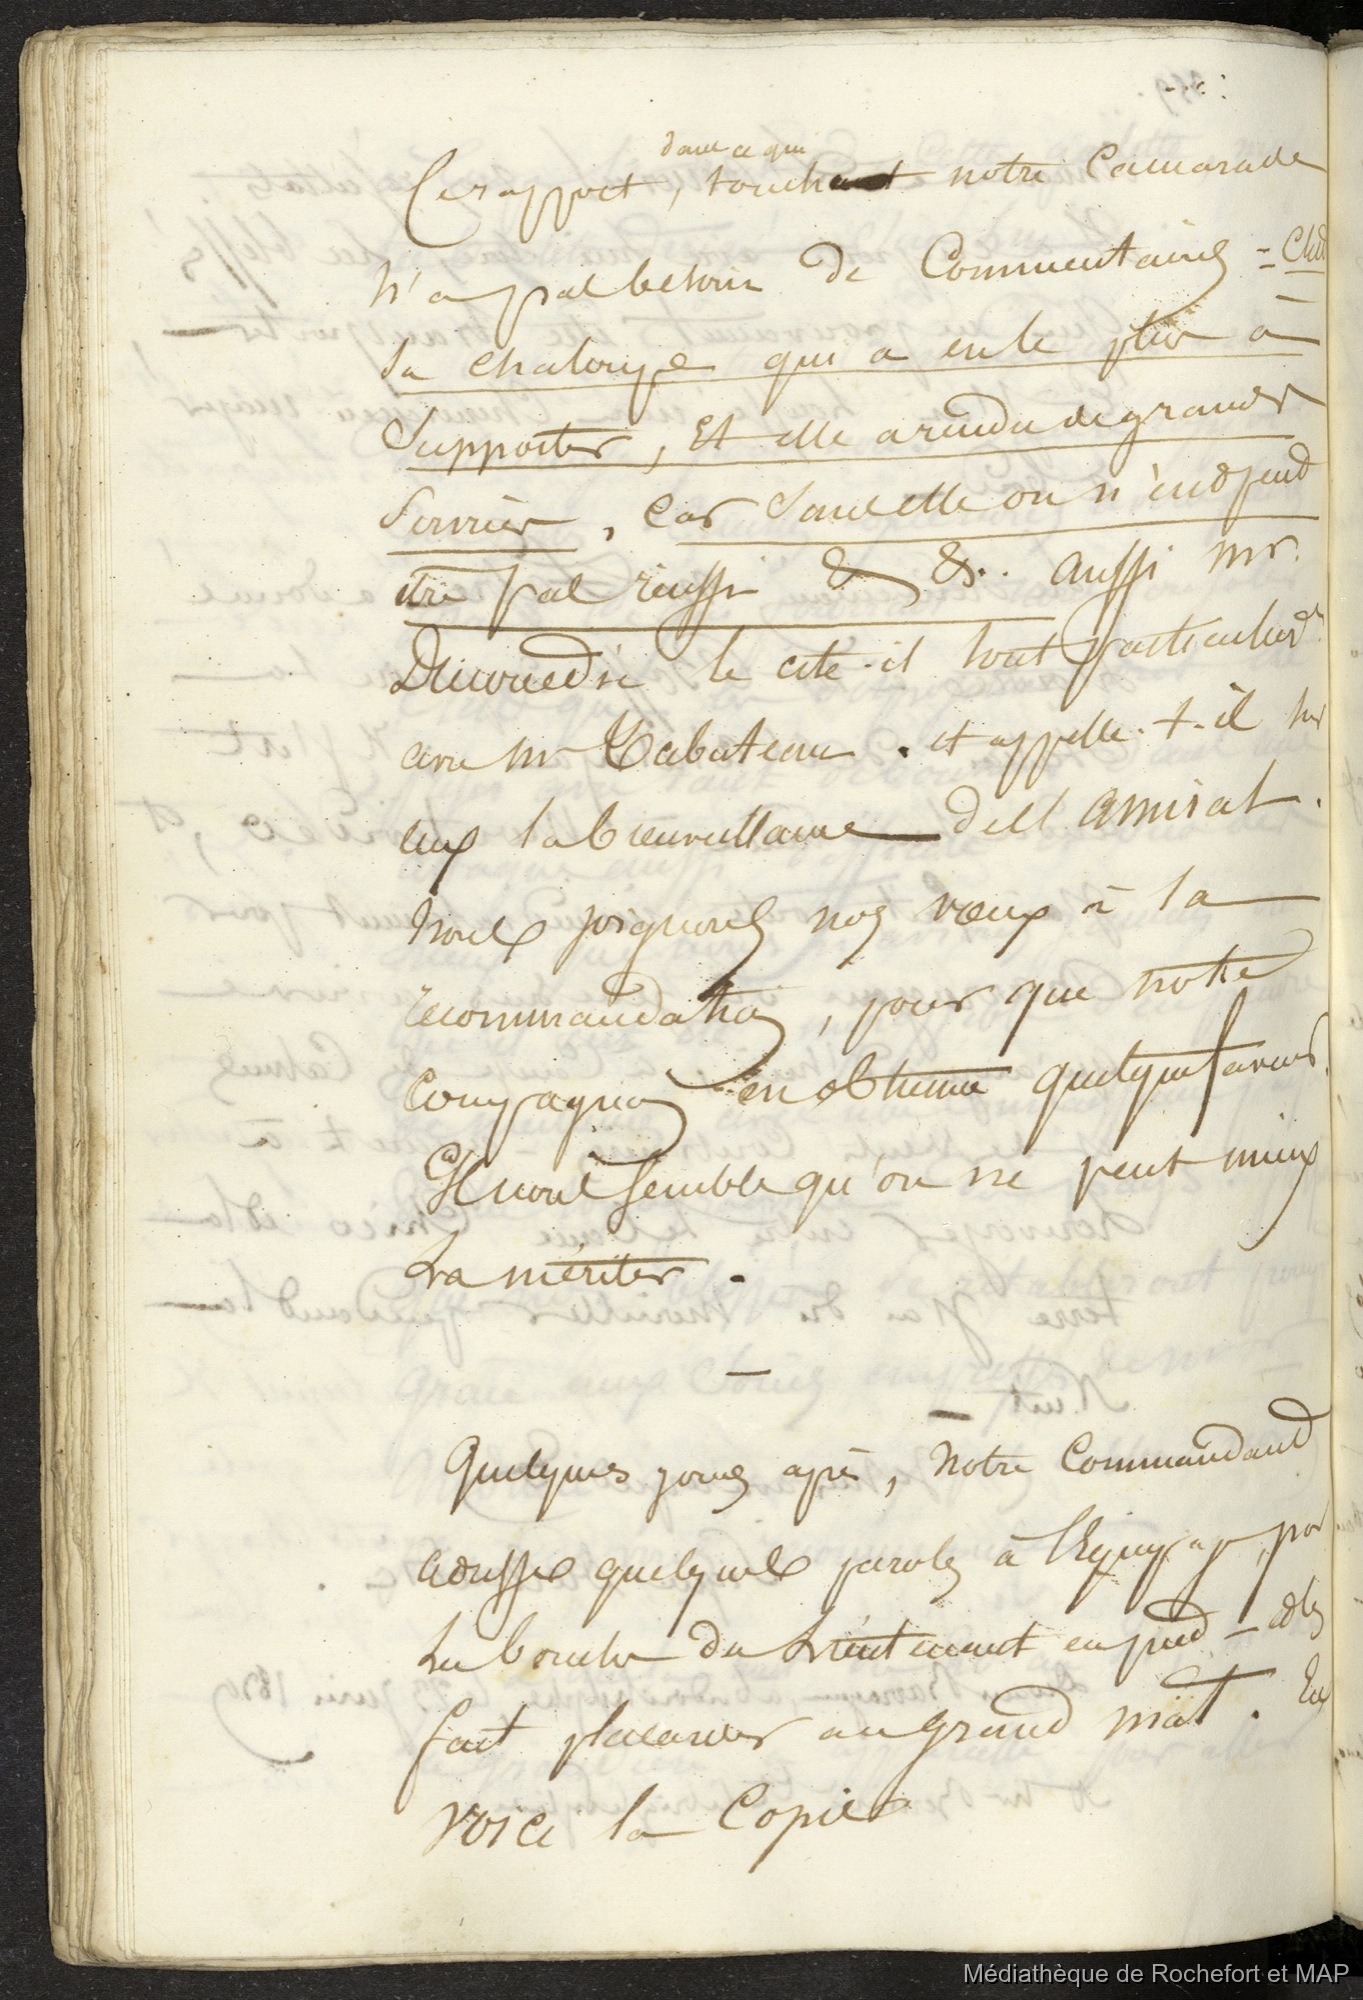 dans ce qui
Ce rapport, touchant notre Camarade
n'a pas besoin de Commentaires = C'est
la chaloupe qui a eu le plus à
Supporter, Et elle a rendu de grands
Services, Car Sans elle on n'eut peut
être pas réussi & &.. aussi Mr.
Ducouedic le cite-il tout particulièrt
avec Mr Tabuteau. et appelle-t-il sur
eux la bienveillance de l'Amiral.
Nous joignons nos vœux à la
recommandation, pour que notre
Compagnon en obtienne quelque faveur.
Il nous Semble qu'on ne peut mieux
la mériter.
Quelques jours après, Notre Commandant
adresse quelques paroles à l'Equipage, par
la bouche du Lieutenant en pied - et les
fait placarder au grand mât. En
voici la Copie
Médiathèque de Rochefort et MAP